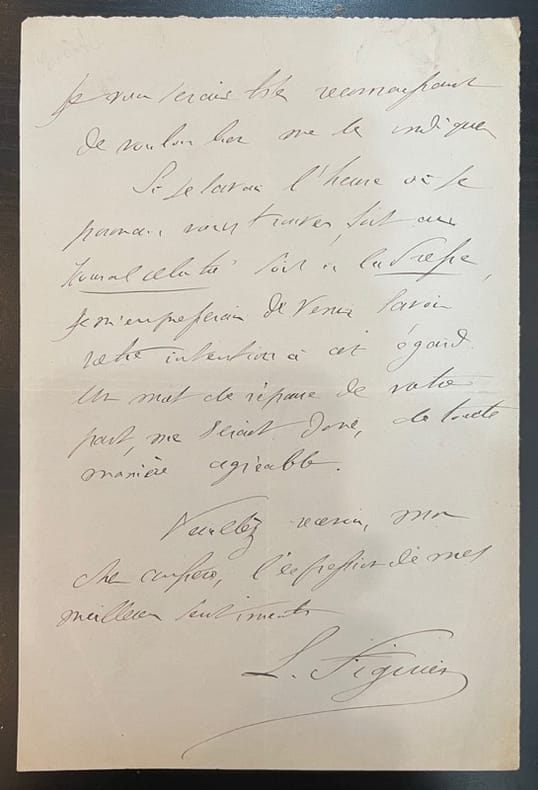 Je vous serais très reconnaissant
de vouloir bien me le indiquer
Si je savais l'heure où je
pourrais vous trouver, soit au
Journal soit à la Presse,
Je m'empresserais de venir savoir
votre intention à cet égard.
Un mot de réponse de votre
part, me serait donc, de toute
manière agréable.
Veuillez recevoir, mon
cher confrère, l'expression de mes
meilleurs sentiments
L. Figuier